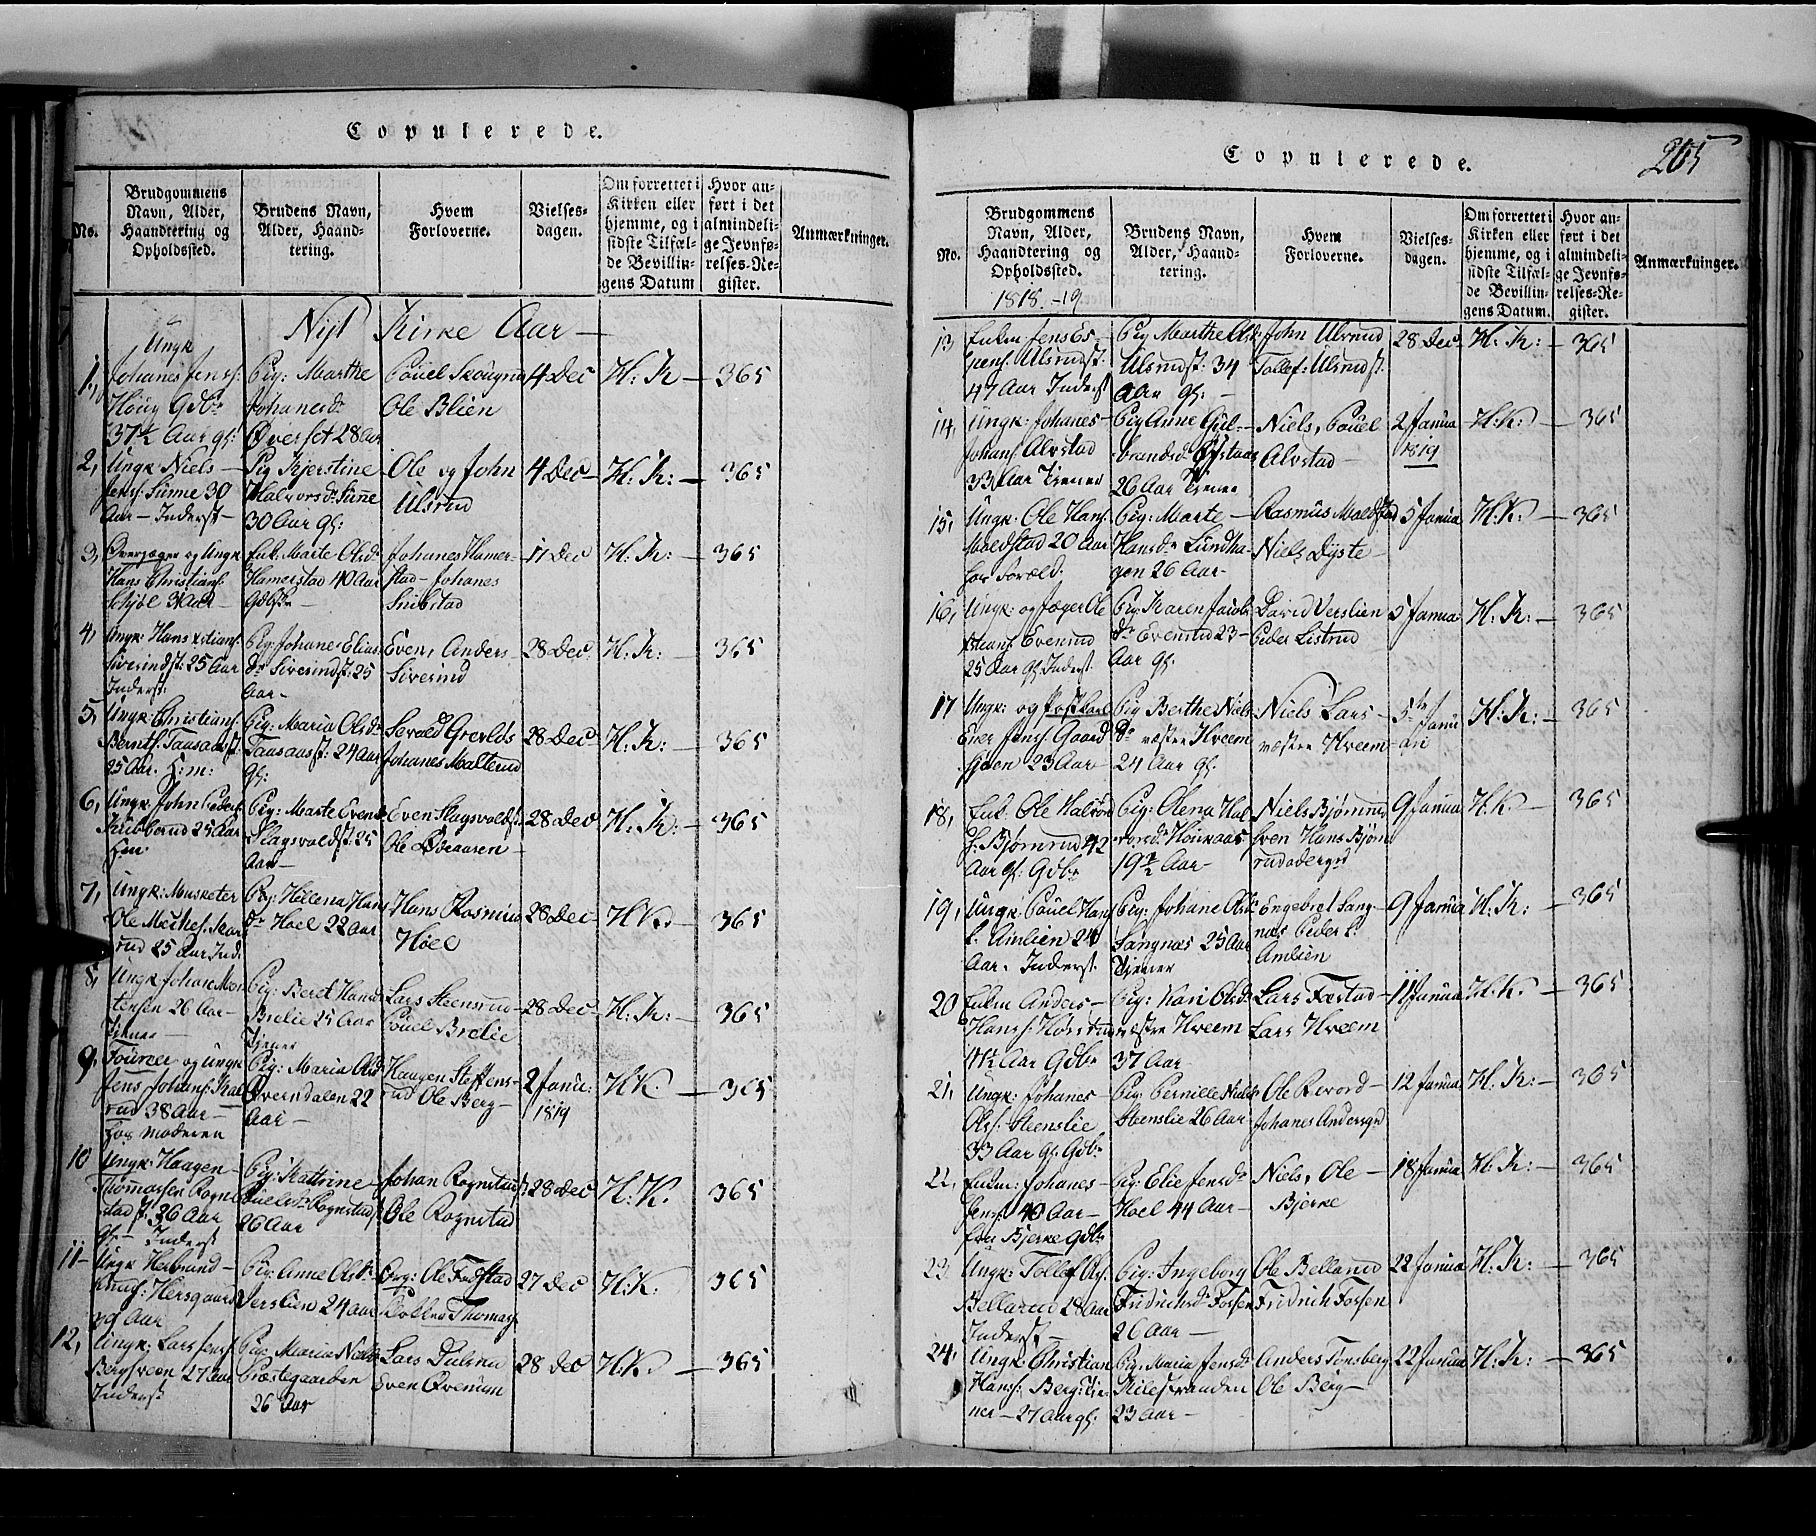 Copulerede.
No.
Brudgommens Navn, Alder, Haandtering og Opholdssted.
Brudens Navn, Alder, Haandtering.
Hvem Forloverne.
Vielsesdagen.
Om forrettet i Kirken eller hjemme, og i sidste Tilfælde Bevillingens Datum
Hvor anført i det almindelige Jevnførelses-Register.
Anmærkninger.
Nyt Kirke Aar —
1, Ungk Johanes Jens:
Houg Gdbr
37½ Aar gl:
Pig: Marthe
Johanesdr
Øverset 28 Aar
Pouel Skougrud
Ole Blien
4 Dec
H: K —
365
2, Ungk Niels —
Jens: Sunne 30
Aar — Inderst —
Pig Kjerstine
Halvorsdr Sunne
30 Aar gl:
Ole og John
Ulsrud
4 Dec —
H: K: —
365
3, Overjæger og Ungk
Hans Christians:
Enk: Marte Olsdr
Hamerstad 40 Aar
Johanes Hamerstad — Johanes
11 Dec
H: K:
365
4, Ungk: Hans
Siverindst: 25 Aar
Inderst:
Pig: Johane Elias
dr Siverindst: 25
Aar —
Even, Anders
Siverind
28 Dec.
H: K: —
365
5, Ungk: Christian
25 Aar. H:m:
Pig: Maria Olsdr
24 Aar
gl:
Johanes Malterud
28 Dec —
H: K: —
365
6, Ungk John Peders:
Kribberud 25 Aar
Pig: Marte Evens
Slagsvoldst: 25
Aar —
Even Slagsvoldst:
28 Dec
H: K: —
365
7, Ungk: Musketer
25 Aar Ind:
Pig: Hellena Hans
dr Hoel 22 Aar
Hans Rosmus
Hoel
28 Dec —
H K: —
365
8, Ungk Johan Mortensen 26 Aar —
Tjener —
Pig: Beret Hansd
Brelie 25 Aar
Tjener
Lars Steensrud —
Pouel Brelie
28 Dec —
H: K: —
365
9, Foureer og Ungk
Jens Johans:
38 Aar —
hos Moderen
Pig: Maria Ols
22
Aar —
Haagen Steffensrud Ole Berg —
2 Janu:
1819
H K. —
365
10 Ungk: Haagen —
Thommassen Rognstad 36 Aar
gl — Inderst
Pig: Kattrine —
Rognstad
26 Aar
Johan Rognstad
Ole Rognstad
28 Dec
H: K.
365
11 — Ungk Helbrand —
Knuds: Hersgaard
Aar
Pig: Anne Olsdr
Verslien 24 Aar
Org: Ole Fodstad
Klokker Thomas:
27 Dec
H: K:
365
12, Ungk: Lars Jens:
Bergsveen 27 Aar
Inderst
Pig: Maria Niels
Præstegaarden
26 Aar
Lars
Even
28 Dec
H: K. —
365
Copulerede.
205
No.
Brudgommens Navn, Alder, Haandtering og Opholdssted.
Brudens Navn, Alder, Haandtering.
Hvem Forloverne.
Vielsesdagen.
Om forrettet i Kirken eller hjemme, og i sidste Tilfælde Bevillingens Datum.
Hvor anført i det almindelige Jevnførelses-Register.
Anmærkninger.
1818. -19.
13 Enkm Jens Espens: Ulsrudst:
47 Aar Inderst
Pig Marthe Ols
Ulsrudst: 34
Aar gl: —
John Ulsrud
Tollef: Ulsrudst:
28 Dec —
H: K: —
365
14, Ungk: Johanes —
Johans Alvstad
33 Aar Tjener
Pig Anne Gulbrandsd
26 Aar Tjener
Niels, Pouel
Alvstad —
2 Janua
1819
H: K: —
365
15, Ungk: Ole Hans:
Moldstad 20 Aar
hos Foræld:
Pig: Marte —
Hansdr Lundhagen 26 Aar —
Rasmus Moldstad
Niels Dyste —
5 Janua
H: K: —
365
16, Ungk: og Jæger Ole
Evenrud
25 Aar gl Inderst
Pig: Karen Jacobs
dr Evenrud 23 —
Aar gl:
David Verslien
Peder Listrud
5 Janua:
H: K: —
365
17 Ungk: og Postkarl
Ener Jens: Gaardsjoen 23 Aar —
Pig Berthe Niels
dr væstre Hveem
24 Aar gl:
Niels Lars —
væstre Hveem —
5te Januari
H: K: —
365
18, Enk: Ole Halvord
s: Bjørnrud 42
Aar gl: Gdbr
Pig: Olena Halvorsdr
19½ Aar —
Niels Bjørnrud
Sven Hans Bjørnrudødegrd
9 Janua
H: K —
365
19, Ungk: Pouel Hans
s. Amlien 24
Aar. Inderst.
Pig: Johane Ols
Sangnæs 25 Aar
Tjener
Engebret Sangnæs Peder P.
Amlien
9 Janua
H: K: —
365
20 Enkm Anders —
Hans:
Aar Gdbr
Pig: Kari Olsdr
væstre Hveem
37 Aar
Lars Fæstad —
Lars Hveem
11 Janua
H: K. —
365
21, Ungk: Johanes —
Ols: Steenslie
33 Aar gl: Gdbr
Pig: Pernille Niels
Steenslie 26 Aar —
Ole Revord —
Johanes Andersgrd
12 Janua
H: K: —
365
22, Enkm: Johanes —
Jens: 40 Aar —
fra Bjerke Gdbr
Pig: Elie Jensdr
Hoel 44 Aar —
Niels, Ole —
Bjerke
18 Janua
H: K: —
365
23 Ungk: Tollef Ols
Bellerud 28 Aar
Inderst —
Pig: Ingeborg
Fridrichsdr Fossen
26 Aar —
Ole Bellerud
Fridrich Fossen
22 Janua
H: K: —
365
24, Ungk: Christian
Hans: Berg: Tjener — 27 Aar gl:
Pig: Maria Jensdr
Kilestranden
23 Aar —
Anders Tonsberg
Ole Berg —
22 Janua
H: K: —
365